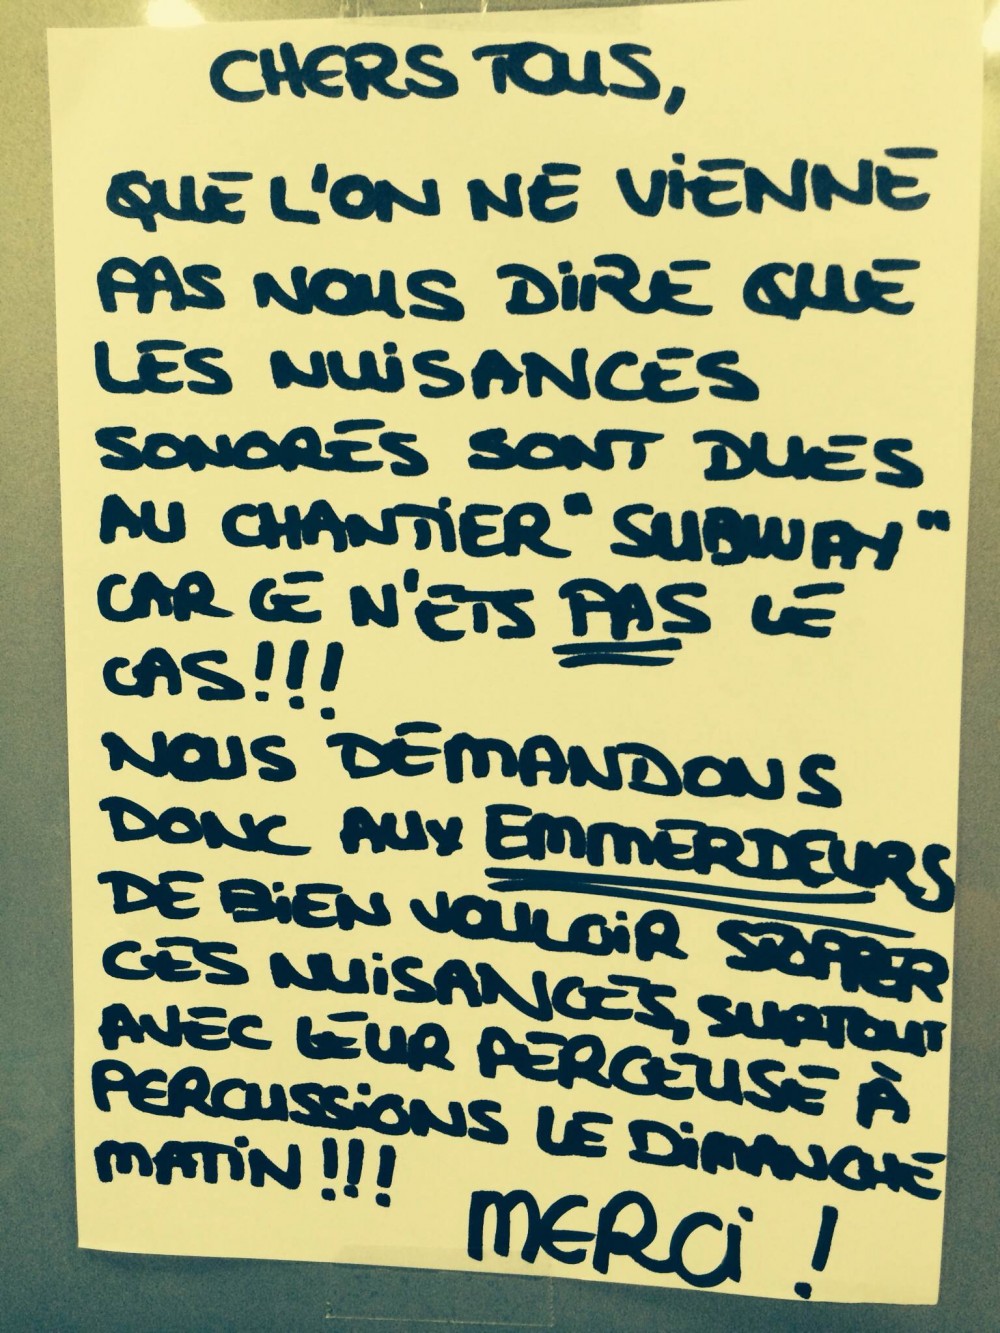 CHERS TOUS,
QUE L'ON NE VIENNE
PAS NOUS DIIRE QUE
LES NUISANCES
SONORES SONT DUES
AU CHANTIER "SUBWAY"
CAR CE N'ETS PAS LE
CAS!!!
NOUS DEMANDONS
DONC AUX EMMERDEURS
DE BIEN VOULOIR STOPPER
CES NUISANCES, SURTOUT
AVEC LEUR PERCEUSE À
PERCUSSIONS LE DIMANCHE
MATIN!!!
MERCI !